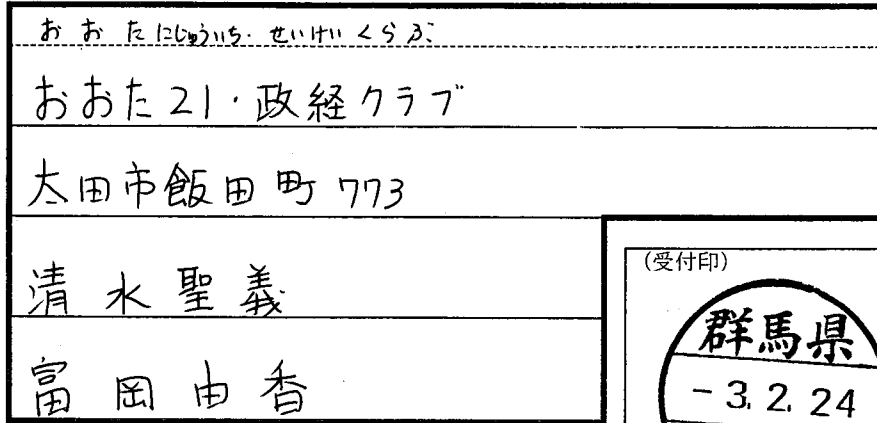 おおたにじゅういち・せいけいくらぶ
おおた21・政経クラブ
太田市飯田町773
清水聖義
富岡由香
(受付印)
群馬県
-3.2.24